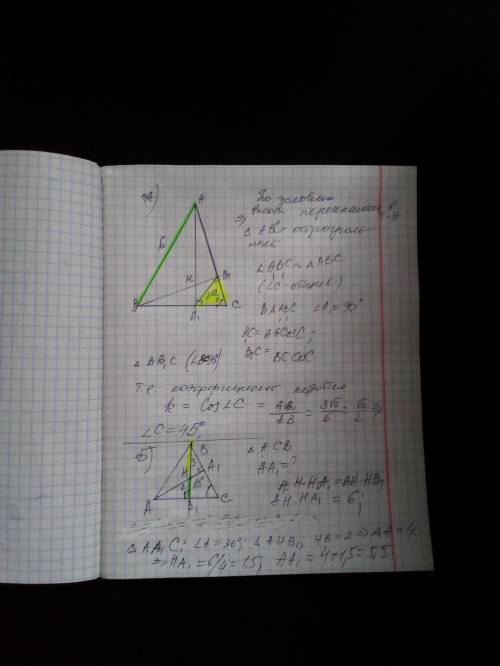 А)
По условию
⇒ высоты пересекаются в т. H
△ АВС остроуголь
ный.
A
6
H
B₁
3√2
B
A₁
C
∠A₁B₁C ~ △ABC
(∠C-общий)
В △ ∠A₁=90°
A₁C = AC cos C;
△ BB₁C
B₁C = BC cos C.
Т.е. коэффициент подобия
k = cos∠C = A₁B₁/AB = 3√2/6 = √2/2 ⇒
∠C = 45°
Б)
B
△ ACB
AA₁ = ?
3
A₁
H
2
A
B₁
C
AH·HA₁ = BH·HB₁
AH·HA₁ = 6;
△ AA₁C; ∠A = 30°; △ AHB₁; HB = 2 ⇒ AH = 4
⇒ HA₁ = 6/4 = 1.5; AA₁ = 4+1,5 = 5,5